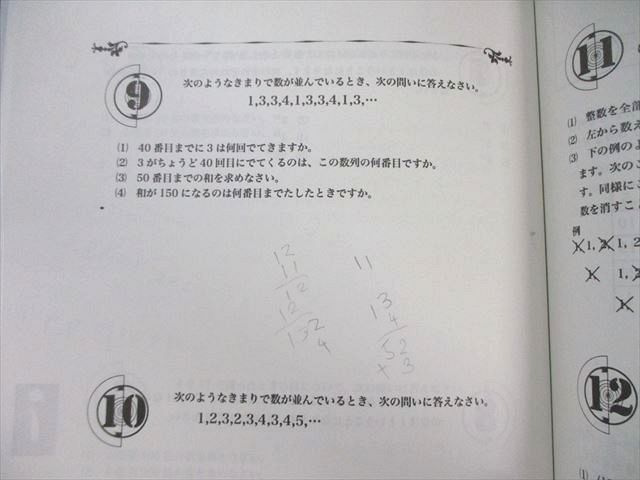 9
次のようなきまりで数が並んでいるとき、次の問いに答えなさい。
1,3,3,4,1,3,3,4,1,3,…
(1) 40番目までに3は何回でてきますか。
(2) 3がちょうど40回目にでてくるのは、この数列の何番目ですか。
(3) 50番目までの和を求めなさい。
(4) 和が150になるのは何番目までたしたときですか。
12
11
12
12
132
4
11
13
4
52
+3
10
次のようなきまりで数が並んでいるとき、次の問いに答えなさい。
1,2,3,2,3,4,3,4,5,…
11
(1) 整数を全部
(2) 左から数え
(3) 下の例のよ
ます。次のこ
す。同様にこ
数を消すこと
例
1, 2 1, 2
1 1, 2
1
12
(1)